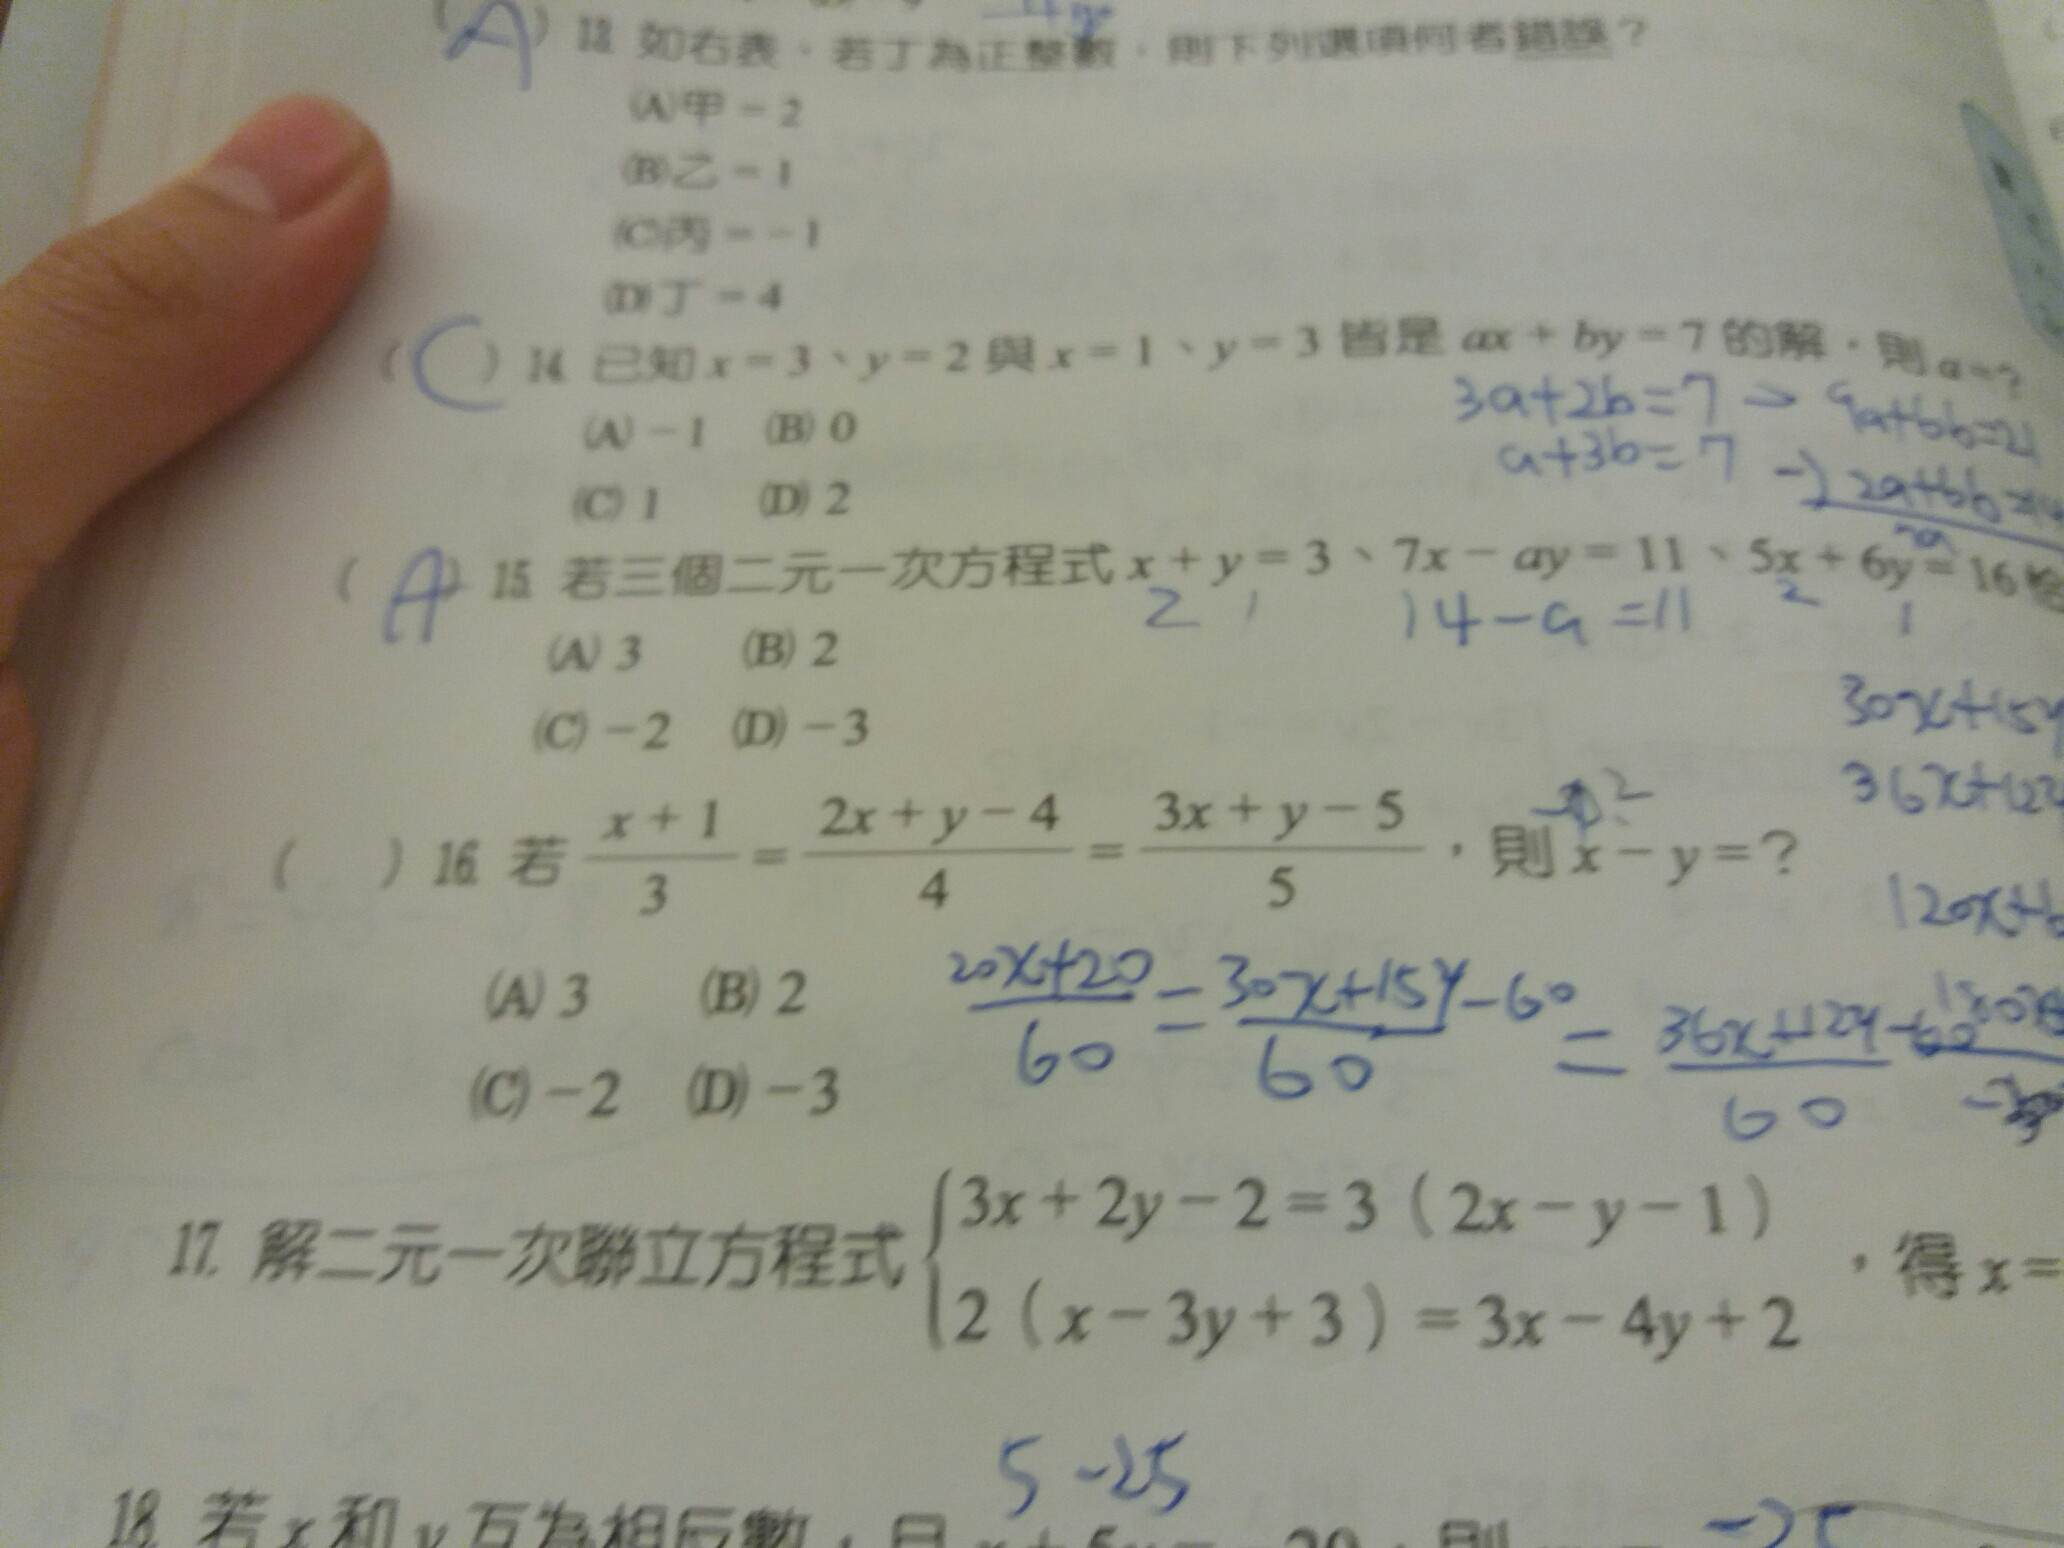 (A) 13. 如右表，若丁為正整數，則下列選項何者錯誤？
(A)甲＝2
(B)乙＝1
(C)丙＝－1
(D)丁＝4
(C) 14. 已知 x＝3、y＝2 與 x＝1、y＝3 皆是 ax＋by＝7 的解，則 a＝？
3a+2b=7 → 9a+6b=21
(A)－1 (B) 0
a+3b=7 -) 2a+6b=14
(C) 1 (D) 2
7a
(A) 15. 若三個二元一次方程式 x＋y＝3、7x－ay＝11、5x＋6y＝16
2 1 14-a=11 2 1
(A) 3 (B) 2
(C)－2 (D)－3
30x+15y
36x+12y
( ) 16. 若 (x＋1)/3 ＝ (2x＋y－4)/4 ＝ (3x＋y－5)/5，則 x－y＝？
120x+6
(A) 3 (B) 2
(20x+20)/60 = (30x+15y-60)/60 = (36x+12y-60)/60
(C)－2 (D)－3
17. 解二元一次聯立方程式 { 3x＋2y－2＝3（2x－y－1）
2（x－3y＋3）＝3x－4y＋2 ，得 x＝
5 -25
18. 若 x 和 y 互為相反數，且 x＋5y＝－20，則
-25